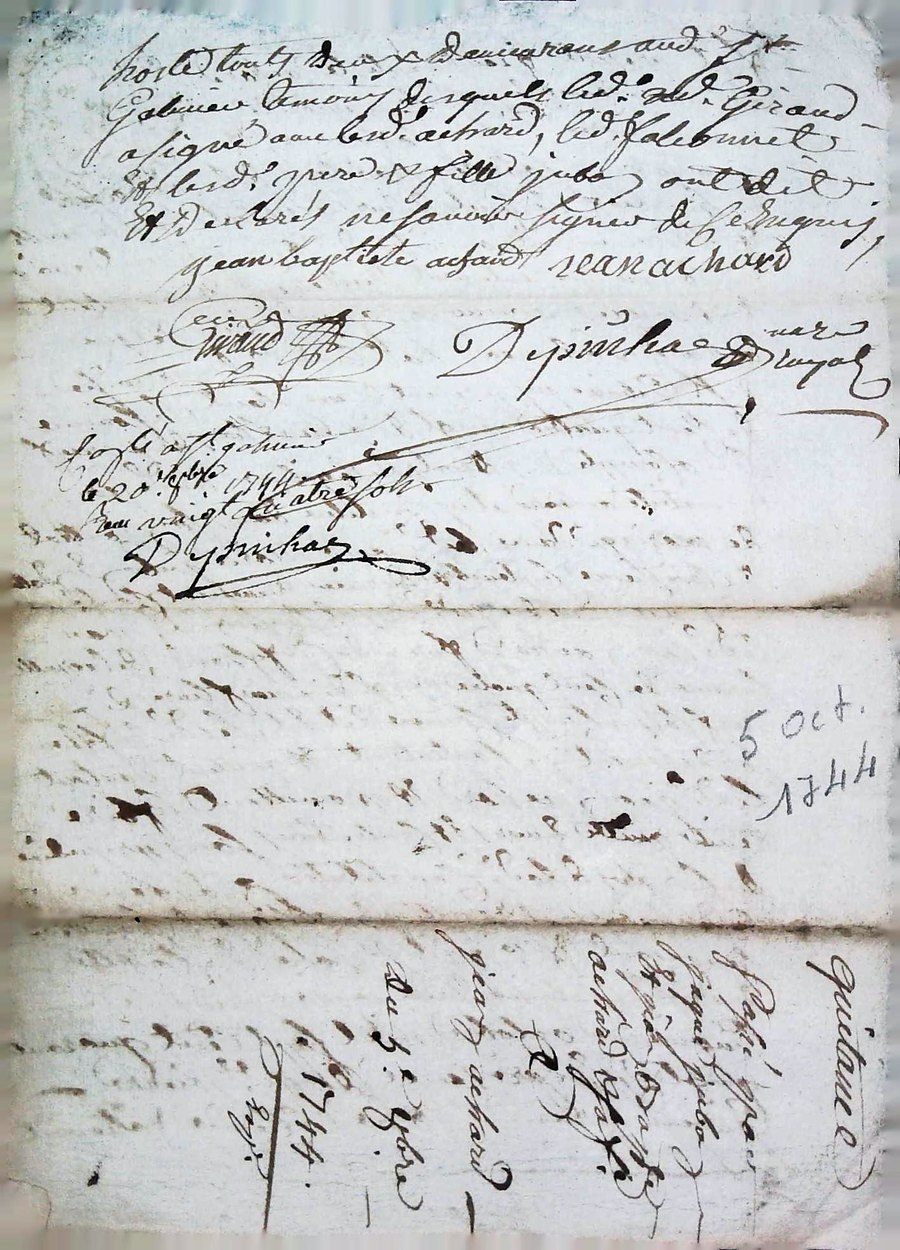 hoste touts deux demeurans aud. St
Galmier temoins desquels led. Sr. Giraud
a signé avec lesd. achard, led. falconnet
Et lesd. pere & fille jubo ont dit
Et Declarés ne savoir signer de Ce Enquis,
jean baptiste achard jean achard
Giraud
Depinhac nore royal
à St galmier
le 20e 1744
Reçu vingt quatre sols
Depinhac
5 oct.
1744
quitance
Passé par
jaque jubo
Et jean Baptiste
achard
A
jean achard
Du 5e 8bre
1744.